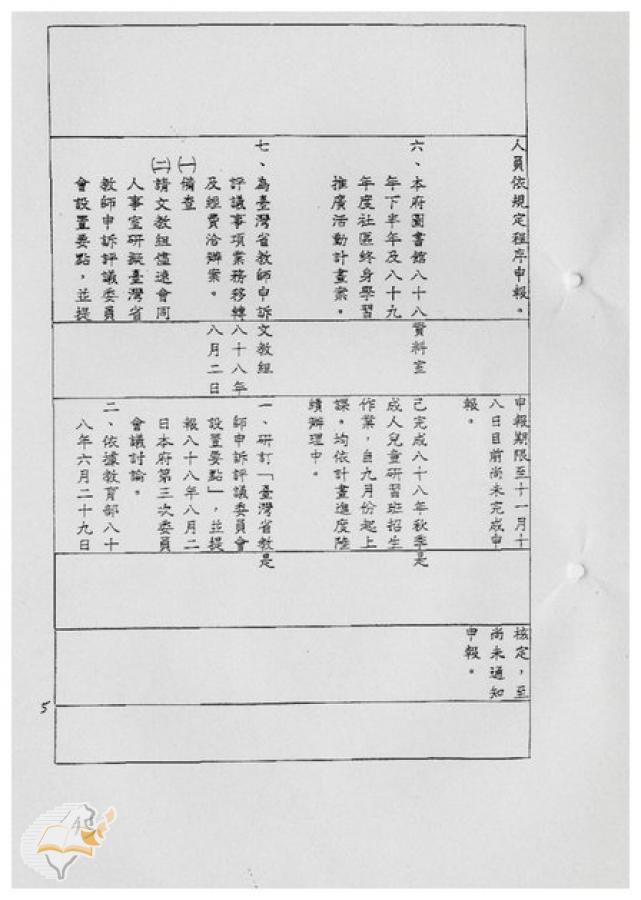 人員依規定程序申報。
六、本府圖書館八十八
年下半年及八十九
年度社區終身學習
推廣活動計畫案。
七、為臺灣省教師申訴
評議事項業務移轉
及經費洽辦案。
㈠備查
㈡請文教組儘速會同
人事室研擬臺灣省
教師申訴評議委員
會設置要點，並提
資料室
文教組
八十八年
八月二日
申報期限至十一月十
八日目前尚未完成申
報。
己完成八十八年秋季
成人兒童研習班招生
作業，自九月份起上
課。均依計畫進度陸
續辦理中。
一、研訂「臺灣省教
師申訴評議委員會
設置要點」，並提
報八十八年八月二
日本府第三次委員
會議討論。
二、依據教育部八十
八年六月二十九日
是
是
核定，至
尚未通知
申報。
5